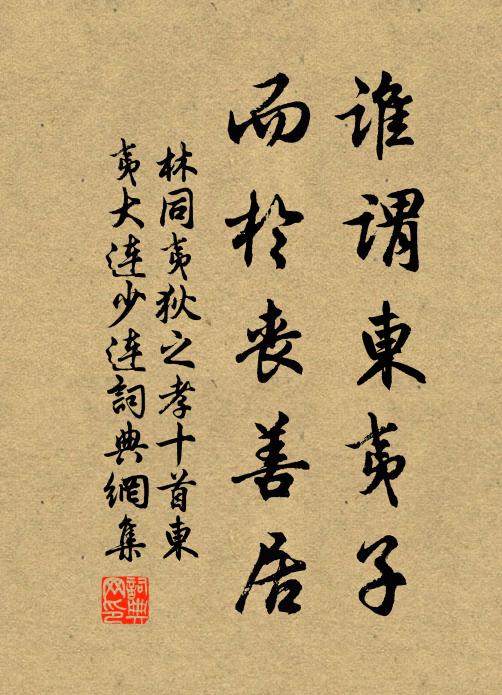 誰謂東夷子
而於喪善居
林同夷狄之孝十首東
夷大連少連詞典網集
詞典
网印